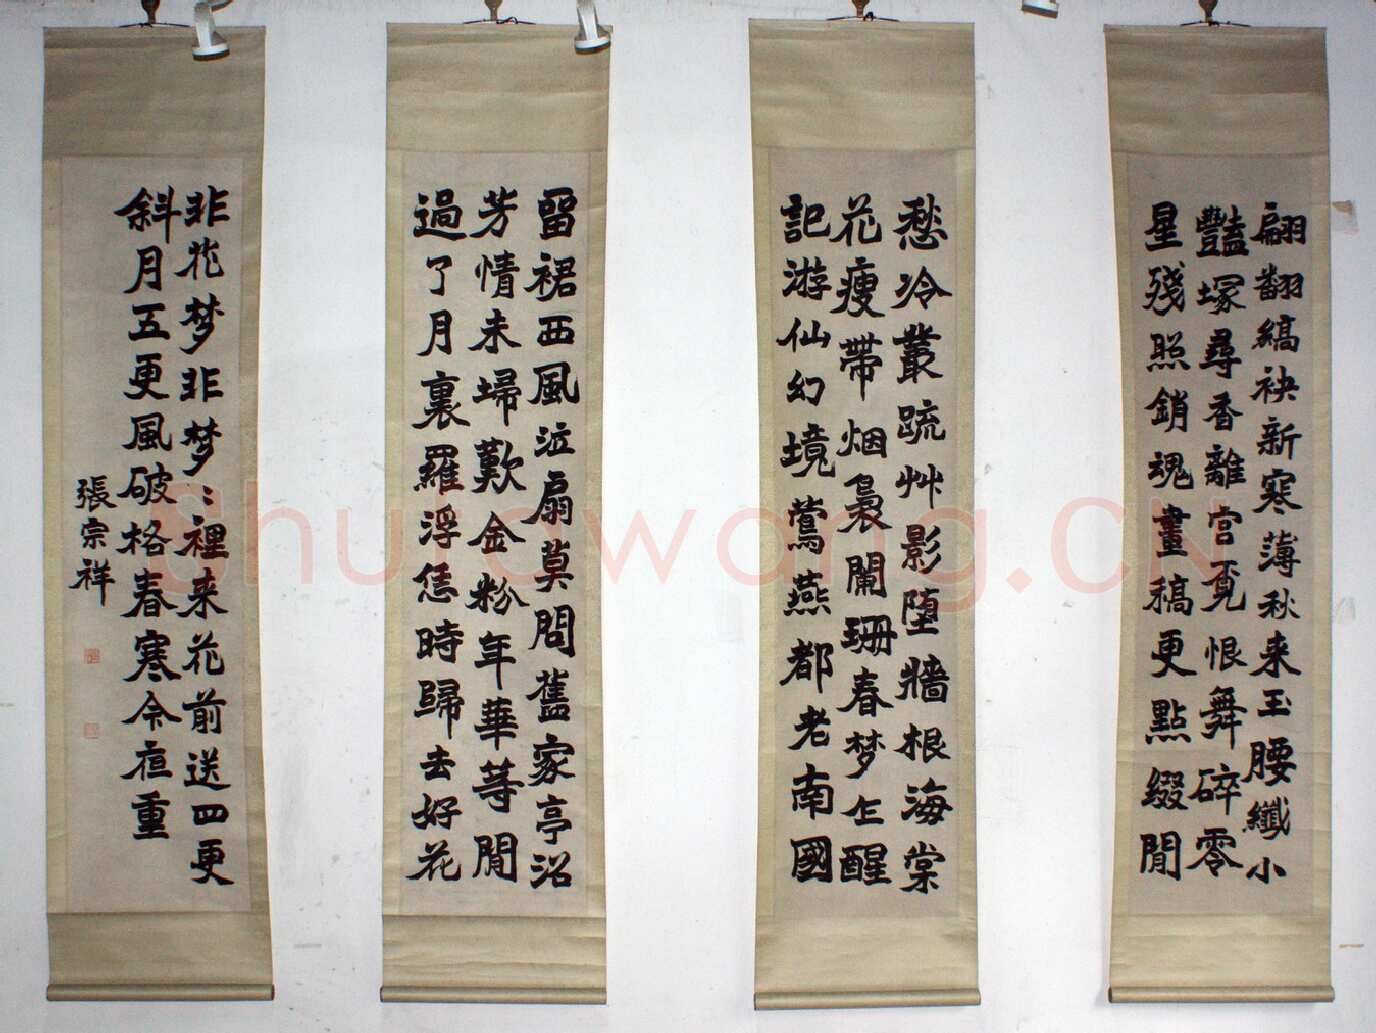 翩翻縞袂新寒薄秋来玉腰纖小
豔塚尋香離宮覓恨舞碎零
星殘照銷魂畫稿更點綴閒
愁冷叢疏艸影墮牆根海棠
花瘦帶烟裊闌珊春梦乍醒
記游仙幻境鶯燕都老南國
留裙西風泣扇莫問舊家亭沼
芳情未埽歎金粉年華等閒
過了月裏羅浮恁時歸去好花
非花梦非梦〻裡来花前送四更
斜月五更風破格春寒令
重
張宗祥
Shufawang.CN